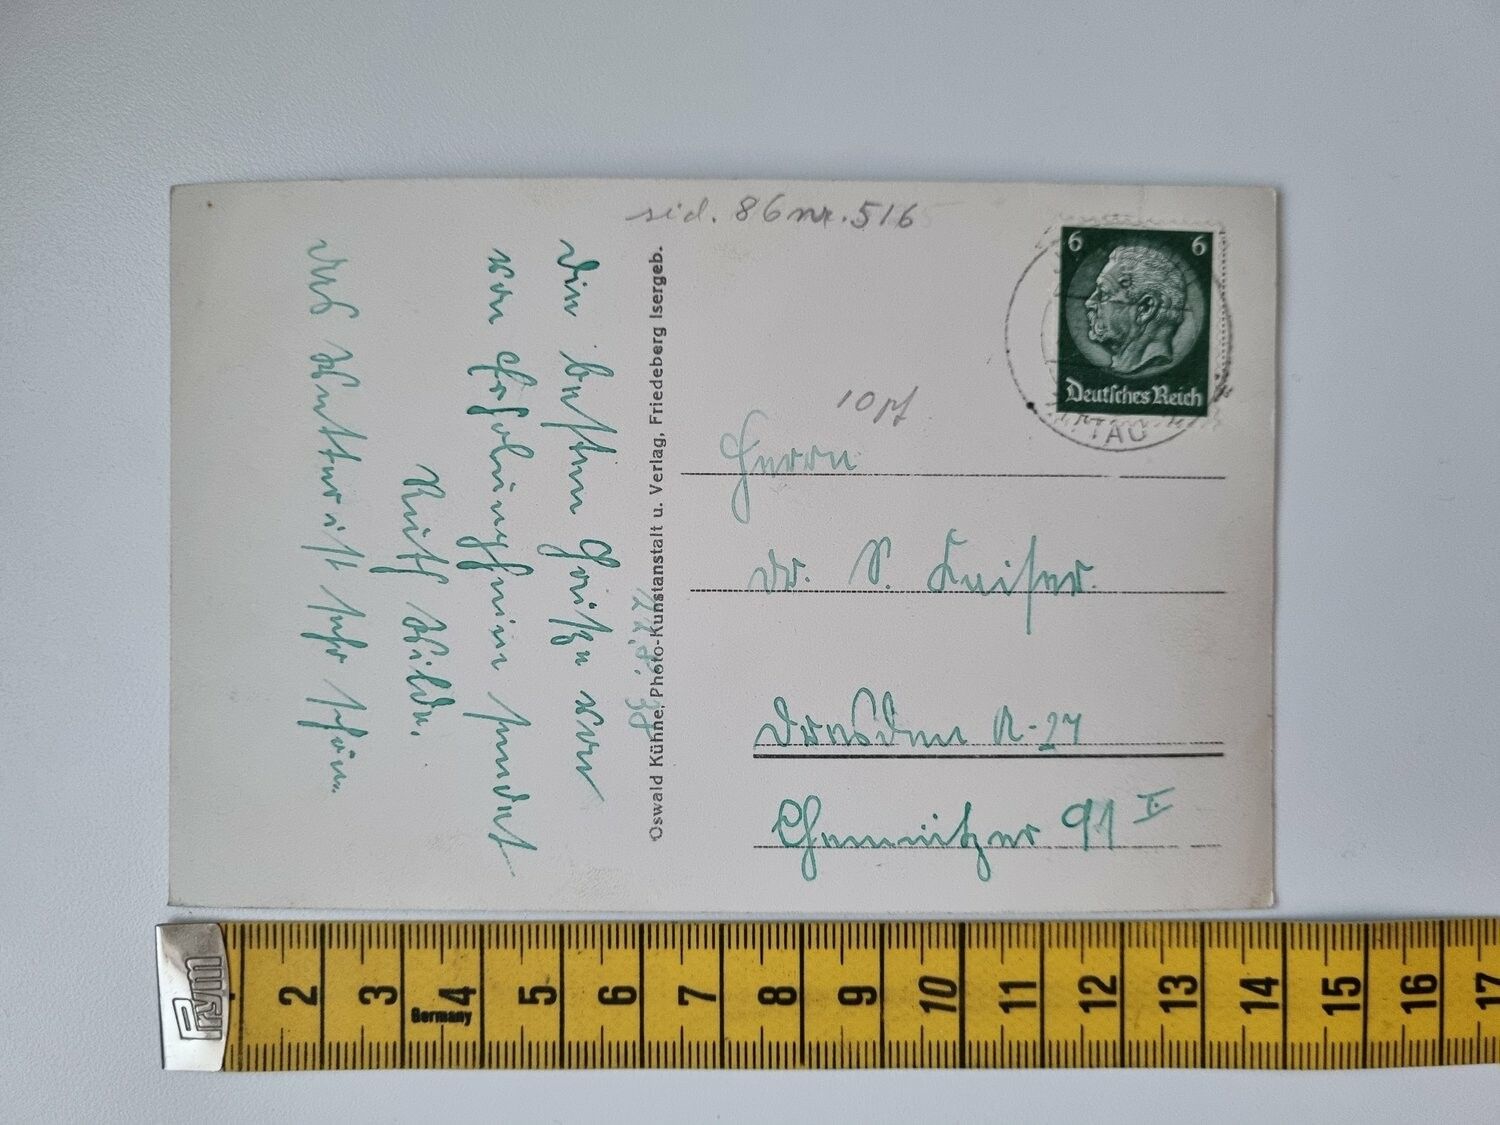 sid. 86 nr. 516
Die besten Grüße von
von Erholungheim sendet
Ruth Wilde.
Das Wetter ist sehr schön.
27.8.38
Oswald Kühne, Photo-Kunstanstalt u. Verlag, Friedeberg Isergeb.
6 6
Deutsches Reich
10 pf
Herrn
Dr. P. Kaiser.
Dresden A-27
Chemnitzer 91 II.
Prym
2 3 4 5 6 7 8 9 10 11 12 13 14 15 16 17
Germany